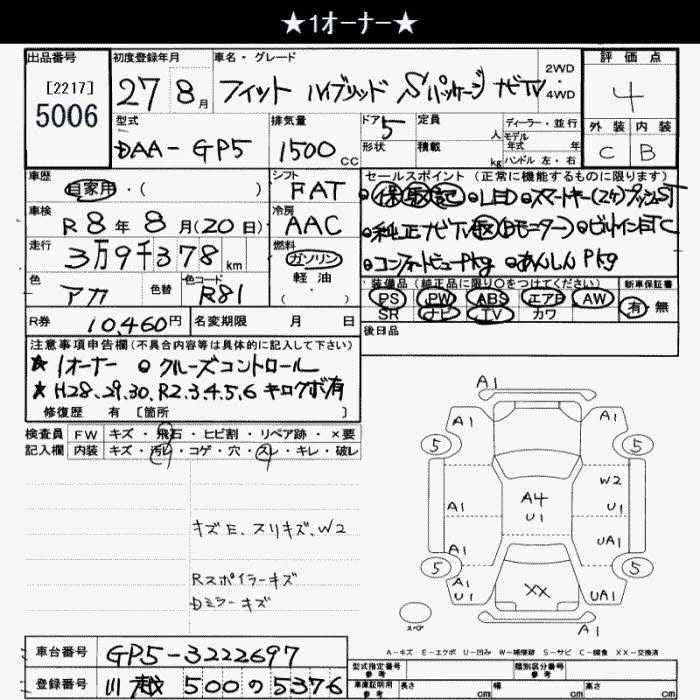 ★1オーナー★
出品番号 初度登録年月 車名・グレード 評価点
[2217] 5006
27 8月 フィット ハイブリッド Sパッケージ ナビTV 2WD 4WD 4
型式 排気量 ドア 定員 ディーラー・並行 外装 内装
DAA-GP5 1500cc 5 人 モデル年式 年 C B
形状 積載 kg ハンドル 左・右
車歴 シフト セールスポイント (正常に機能するものに限ります)
自家用・( ) FAT 保 取 記 LED スマートキー(2ケ) プッシュST
車検 冷房
R8年8月(20日) AAC 純正ナビTV 取 (Dモニター) ビルインETC
走行 燃料
3万9千378km ガソリン コンフォートビューPkg あんしんPkg
軽油
色 色替 色コード ( ) 装備品(純正品に限り○をつけてください) 新車保証書
アカ R81 PS PW ABS エアB AW 有・無
SR ナビ TV カワ
R券 10,460円 名変期限 月 日 後日品
注意事項申告欄(不具合内容等は具体的に記入して下さい)
★1オーナー クルーズコントロール
★H28.29.30.R2.3.4.5.6 キロクボ有
修復歴 有 [箇所 ]
検査員 FW キズ・飛石・ヒビ割・リペア跡・×要
記入欄 内装 キズ・汚レ・コゲ・穴・スレ・キレ・破レ
キズE、スリキズ、W2
Rスポイラーキズ
Dミラーキズ
A1
A1 A1
5 5
W2
A1 A4 U1
UA1
A1
5 5
A1 U1 XX UA1
スペア A1
A-キズ E-エクボ U-凹み W-補修跡 S-サビ C-腐食 XX-交換済
車台番号 GP5-3222697
型式指定番号 参考 類別区分番号 参考
登録番号 川越 500 の 5376
車庫証明用 参考 長さ cm 幅 cm 高さ cm